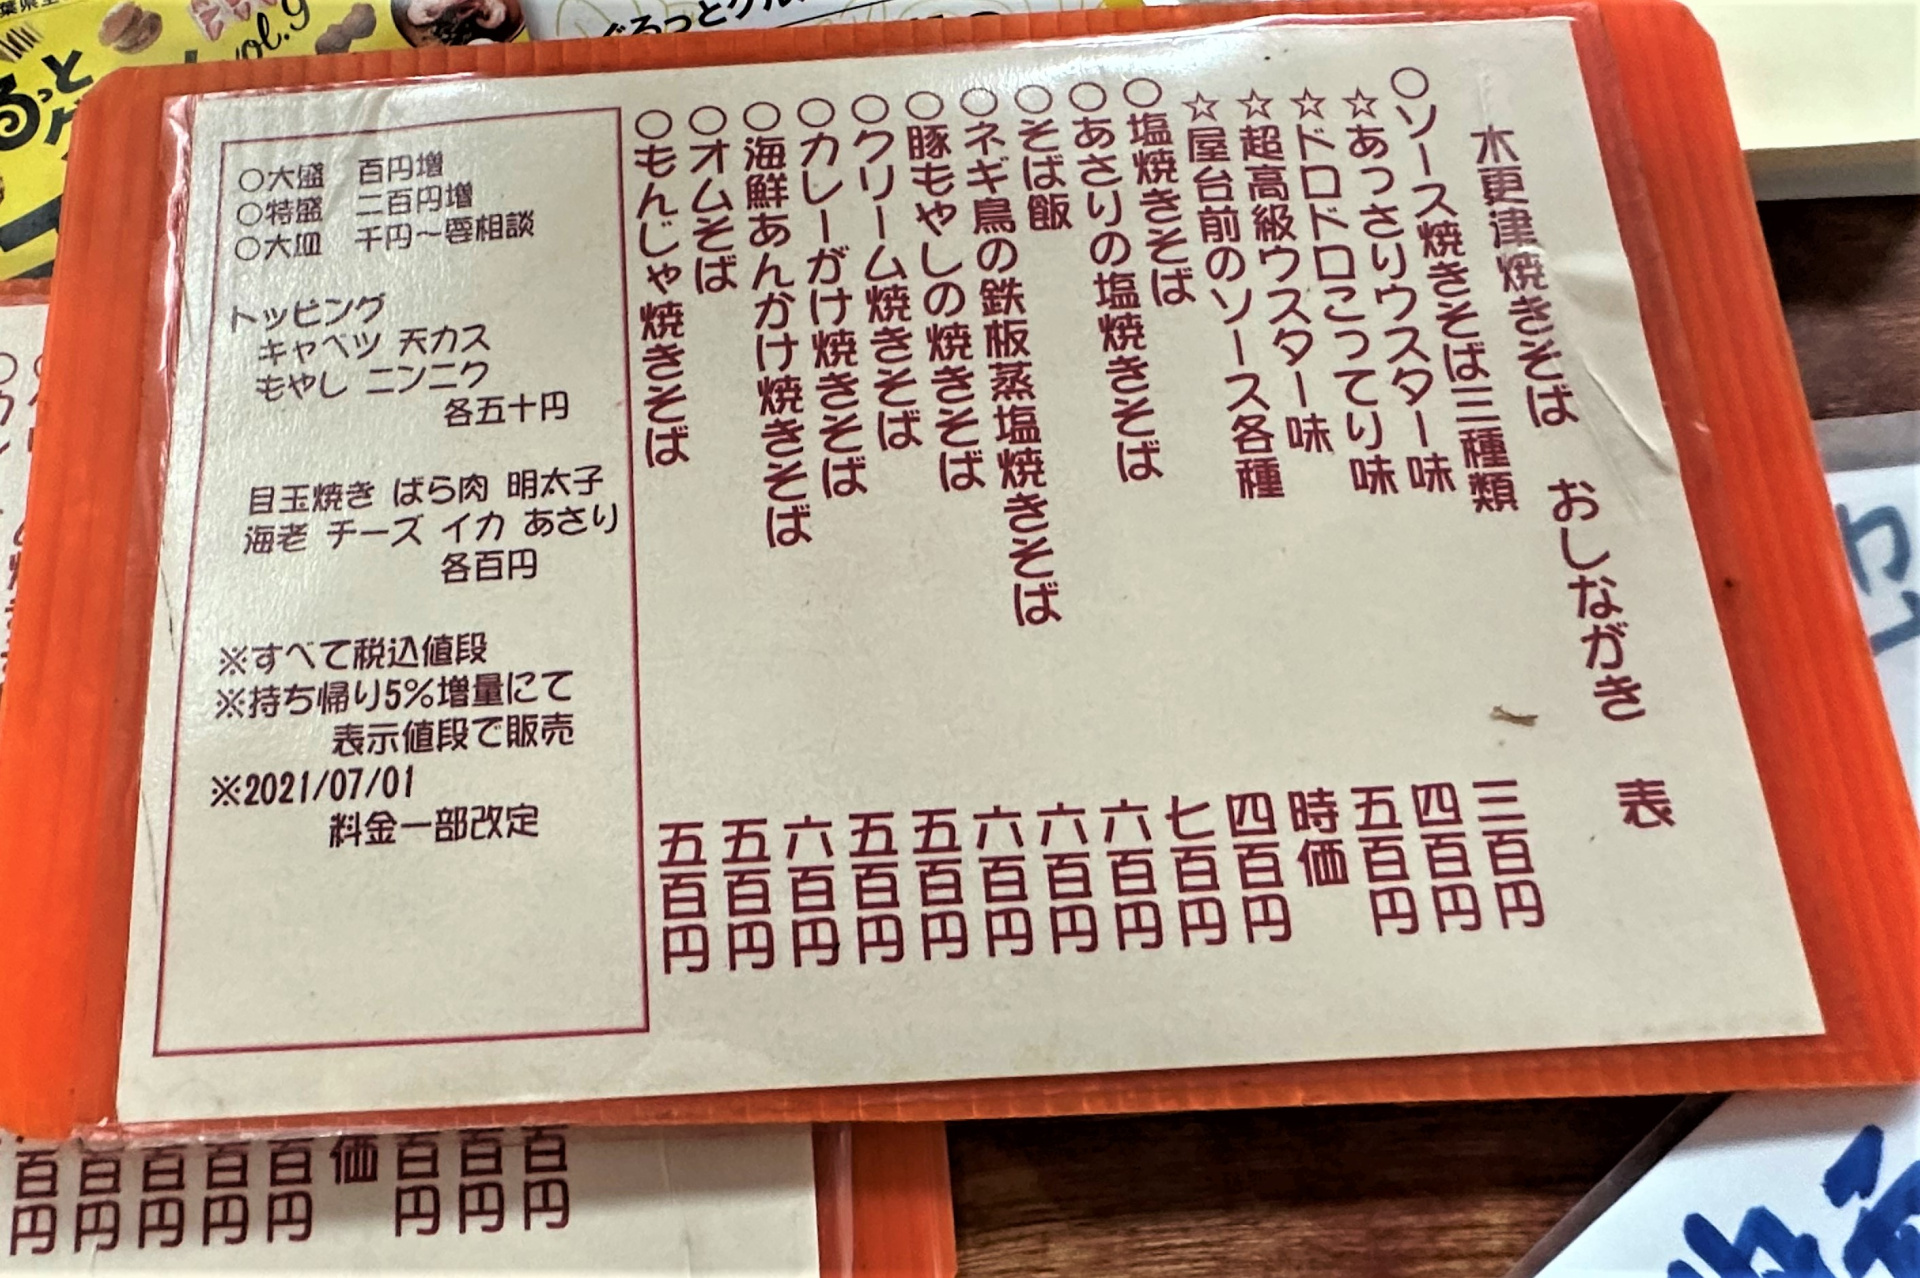 木更津焼きそば　おしながき　表
○ソース焼きそば三種類
☆あっさりウスター味　三百円
☆ドロドロこってり味　四百円
☆超高級ウスター味　五百円
☆屋台前のソース各種　時価
○塩焼きそば　四百円
○あさりの塩焼きそば　七百円
○そば飯　六百円
○ネギ鳥の鉄板蒸塩焼きそば　六百円
○豚もやしの焼きそば　六百円
○クリーム焼きそば　五百円
○カレーがけ焼きそば　五百円
○海鮮あんかけ焼きそば　六百円
○オムそば　五百円
○もんじゃ焼きそば　五百円
○大盛　百円増
○特盛　二百円増
○大皿　千円～要相談
トッピング
キャベツ 天カス
もやし ニンニク
各五十円
目玉焼き ばら肉 明太子
海老 チーズ イカ あさり
各百円
※すべて税込値段
※持ち帰り5%増量にて
表示値段で販売
※2021/07/01
料金一部改定
vol.9
百円
百円
百円
価
百円
百円
百円
百円
百円